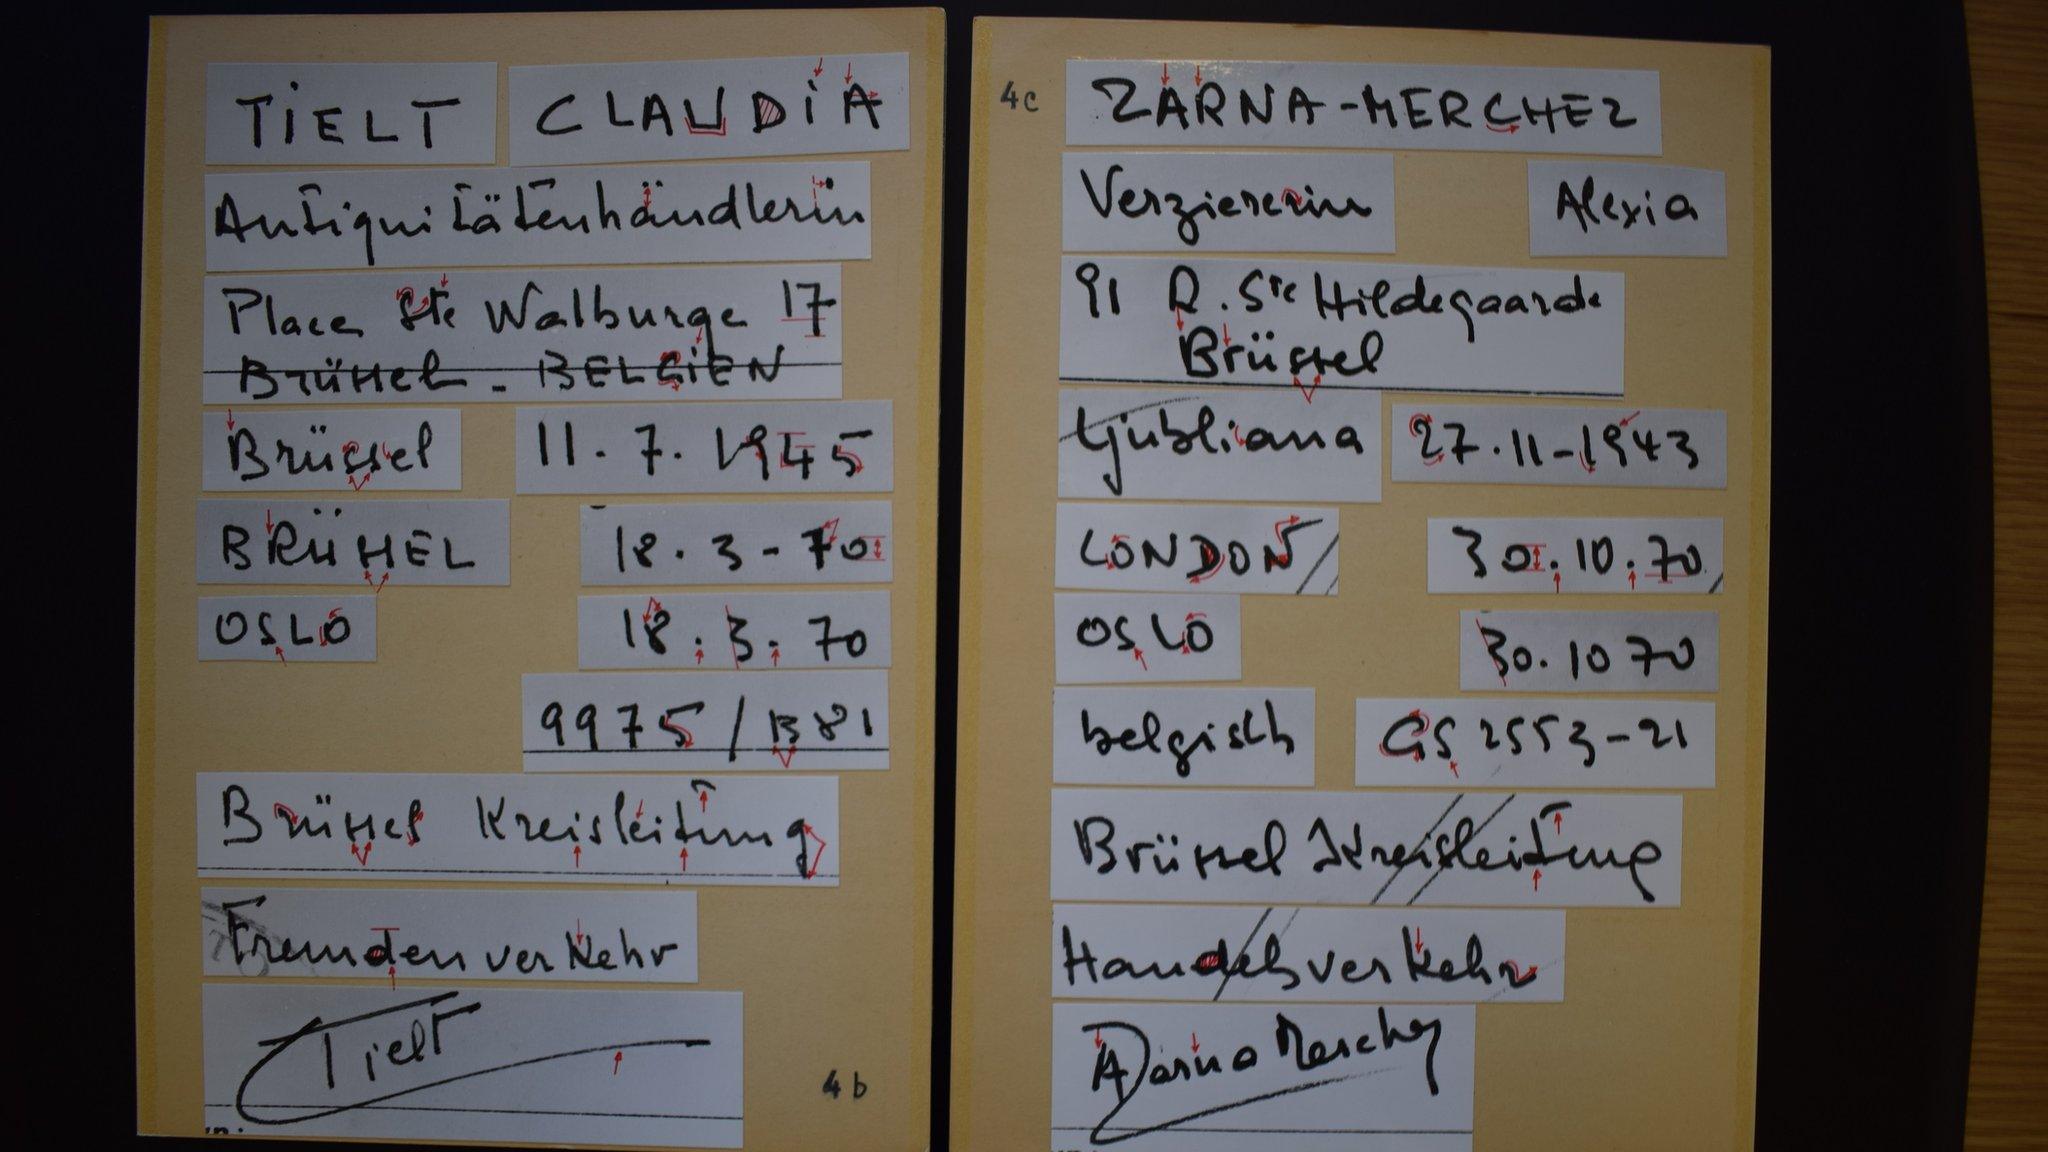 TiELT CLAUDiA
Antiquitätenhändlerin
Place Ste Walburge 17
Brüssel - BELGiEN
Brüssel 11.7.1945
BRÜSSEL 18.3-70
OSLO 18.3.70
9975/B81
Brüssel Kreisleitung
Fremdenverkehr
Tielt
4b
4c ZARNA-MERCHEZ
Verziererin Alexia
91 R. Ste Hildegaarde
Brüssel
Ljubliana 27.11-1943
LONDON 30.10.70
OSLO 30.10 70
belgisch GS 2553-21
Brüssel Kreisleitung
Handelsverkehr